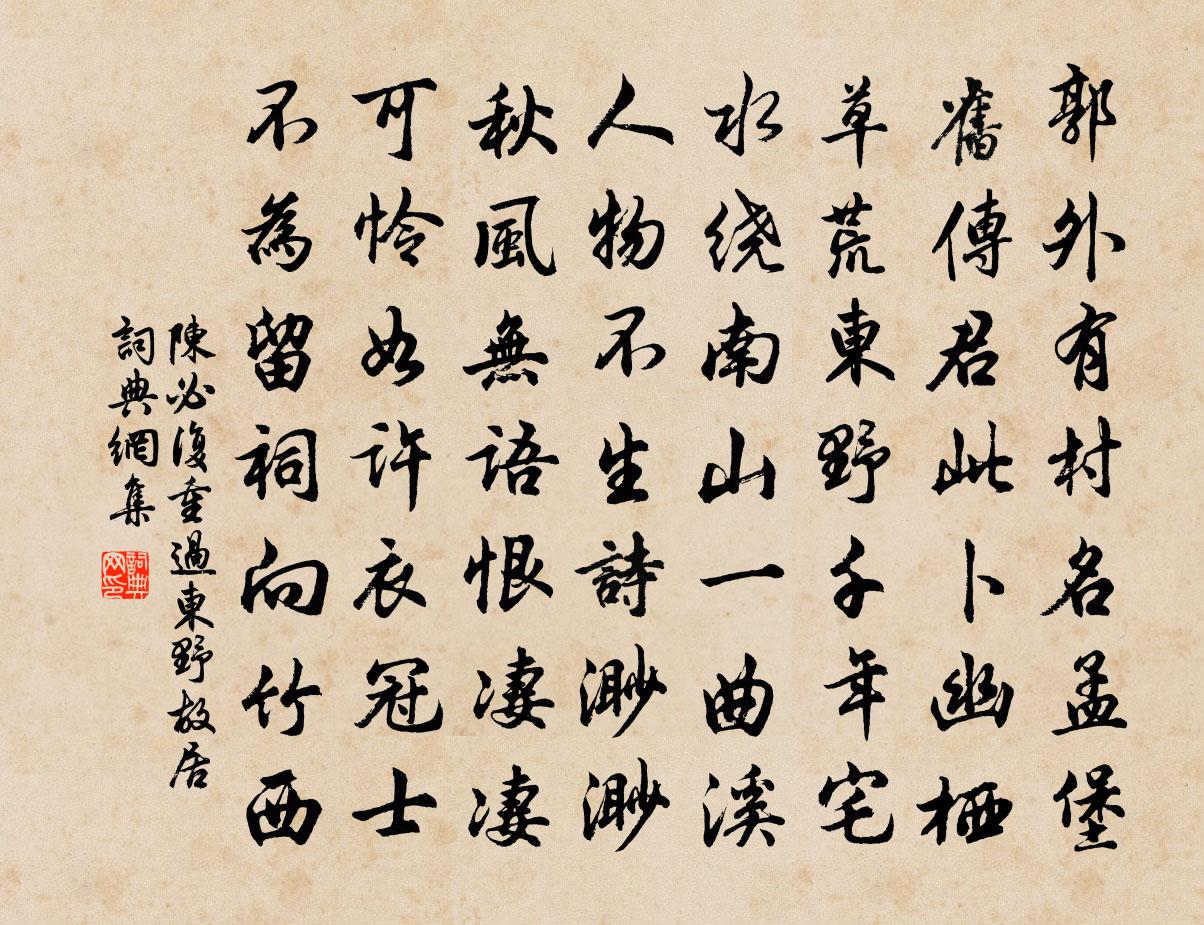 郭外有村名孟堡
舊傳君此卜幽栖
草荒東野千年宅
水绕南山一曲溪
人物不生詩渺渺
秋風無語恨凄凄
可怜如许衣冠士
不為留祠向竹西
陳必復重過東野故居
詞典網集
詞典
网印